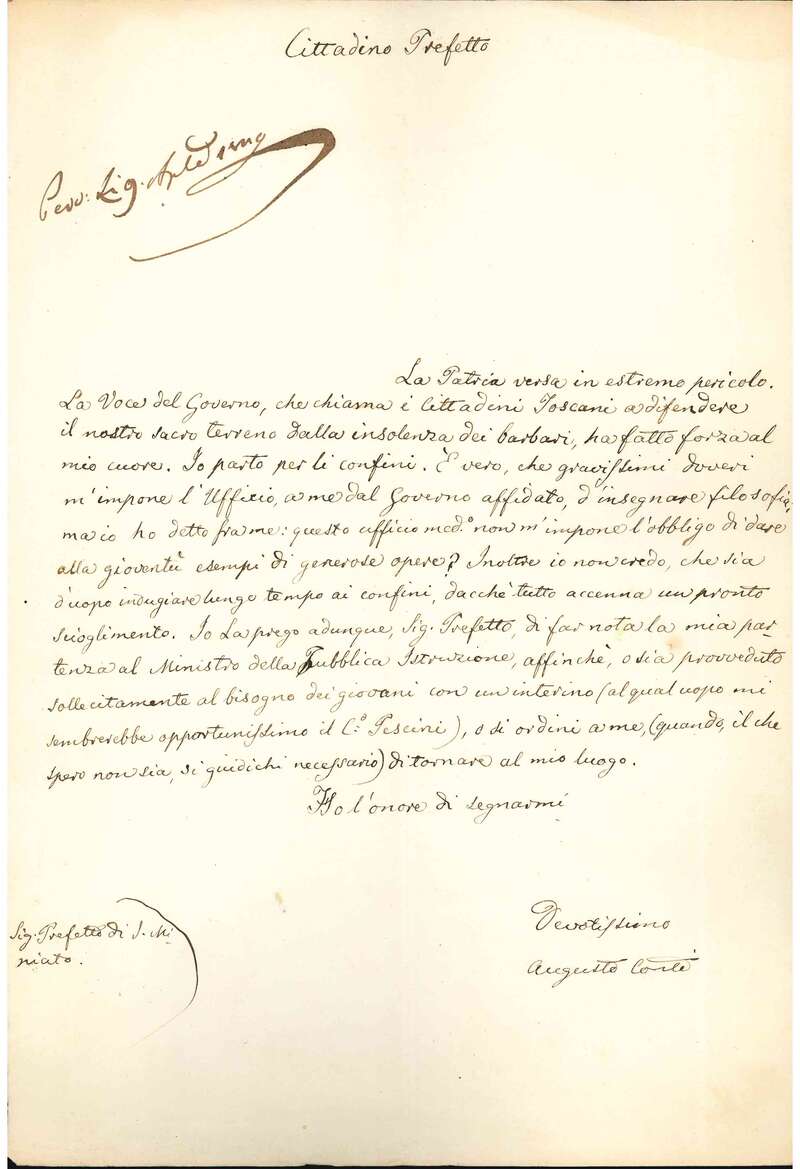 Cittadino Prefetto
La Patria versa in estremo pericolo.
La Voce del Governo, che chiama i Cittadini Toscani a difendere
il nostro sacro terreno dalla insolenza dei barbari, ha fatto forza al
mio cuore. Io parto per li confini. È vero, che gravissimi doveri
m'impone l'Ufficio, a me dal Governo affidato, d'insegnare filosofia,
ma io ho detto fra me: questo ufficio med.º non m'impone l'obbligo di dare
alla gioventù esempi di generose opere? Inoltre io non credo, che sia
d'uopo indugiare lungo tempo ai confini, dacchè tutto accenna un pronto
scioglimento. Io La prego adunque, Sig. Prefetto, di far nota la mia par-
tenza al Ministro della Pubblica Istruzione, affinchè, o sia provveduto
sollecitamente al bisogno dei giovani con un interino (al qual uopo mi
sembrerebbe opportunissimo il C.º Pescini), o si ordini a me, (quando, il che
spero non sia, si guidichi necessario) di tornare al mio luogo.
Ho l'onore di segnarmi
Devotissimo
Augusto Conti
Sig. Prefetto di S. Mi-
niato.